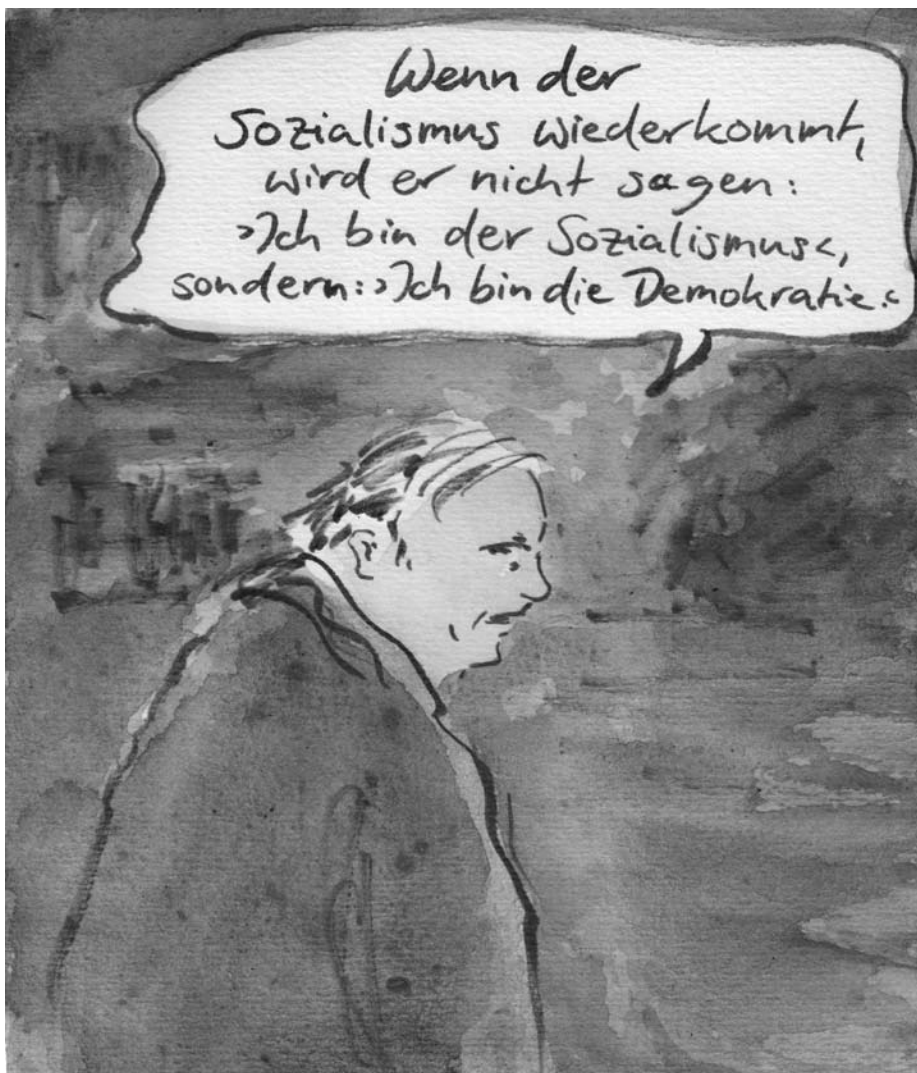 Wenn der
Sozialismus wiederkommt,
wird er nicht sagen:
›Ich bin der Sozialismus‹,
sondern: ›Ich bin die Demokratie.‹